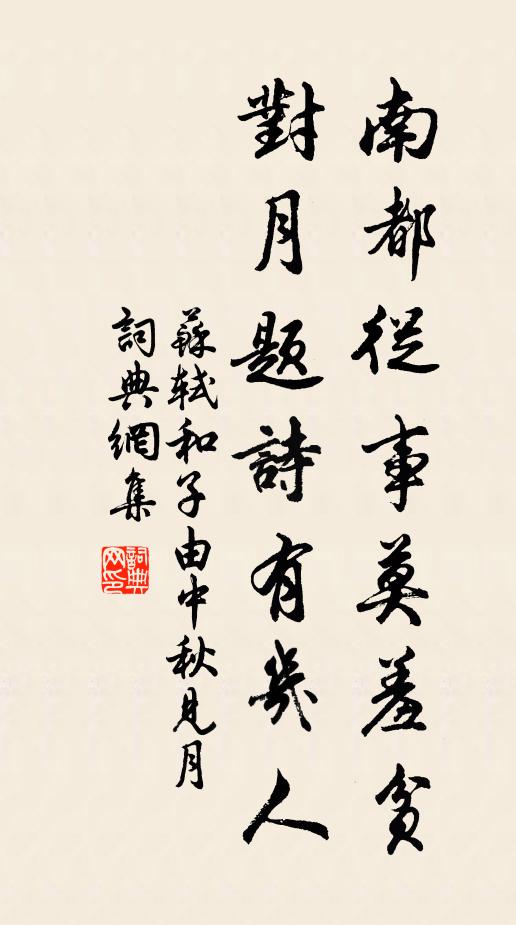 南都從事莫羞貧
對月題詩有幾人
蘇軾和子由中秋見月
詞典網集
詞典网印